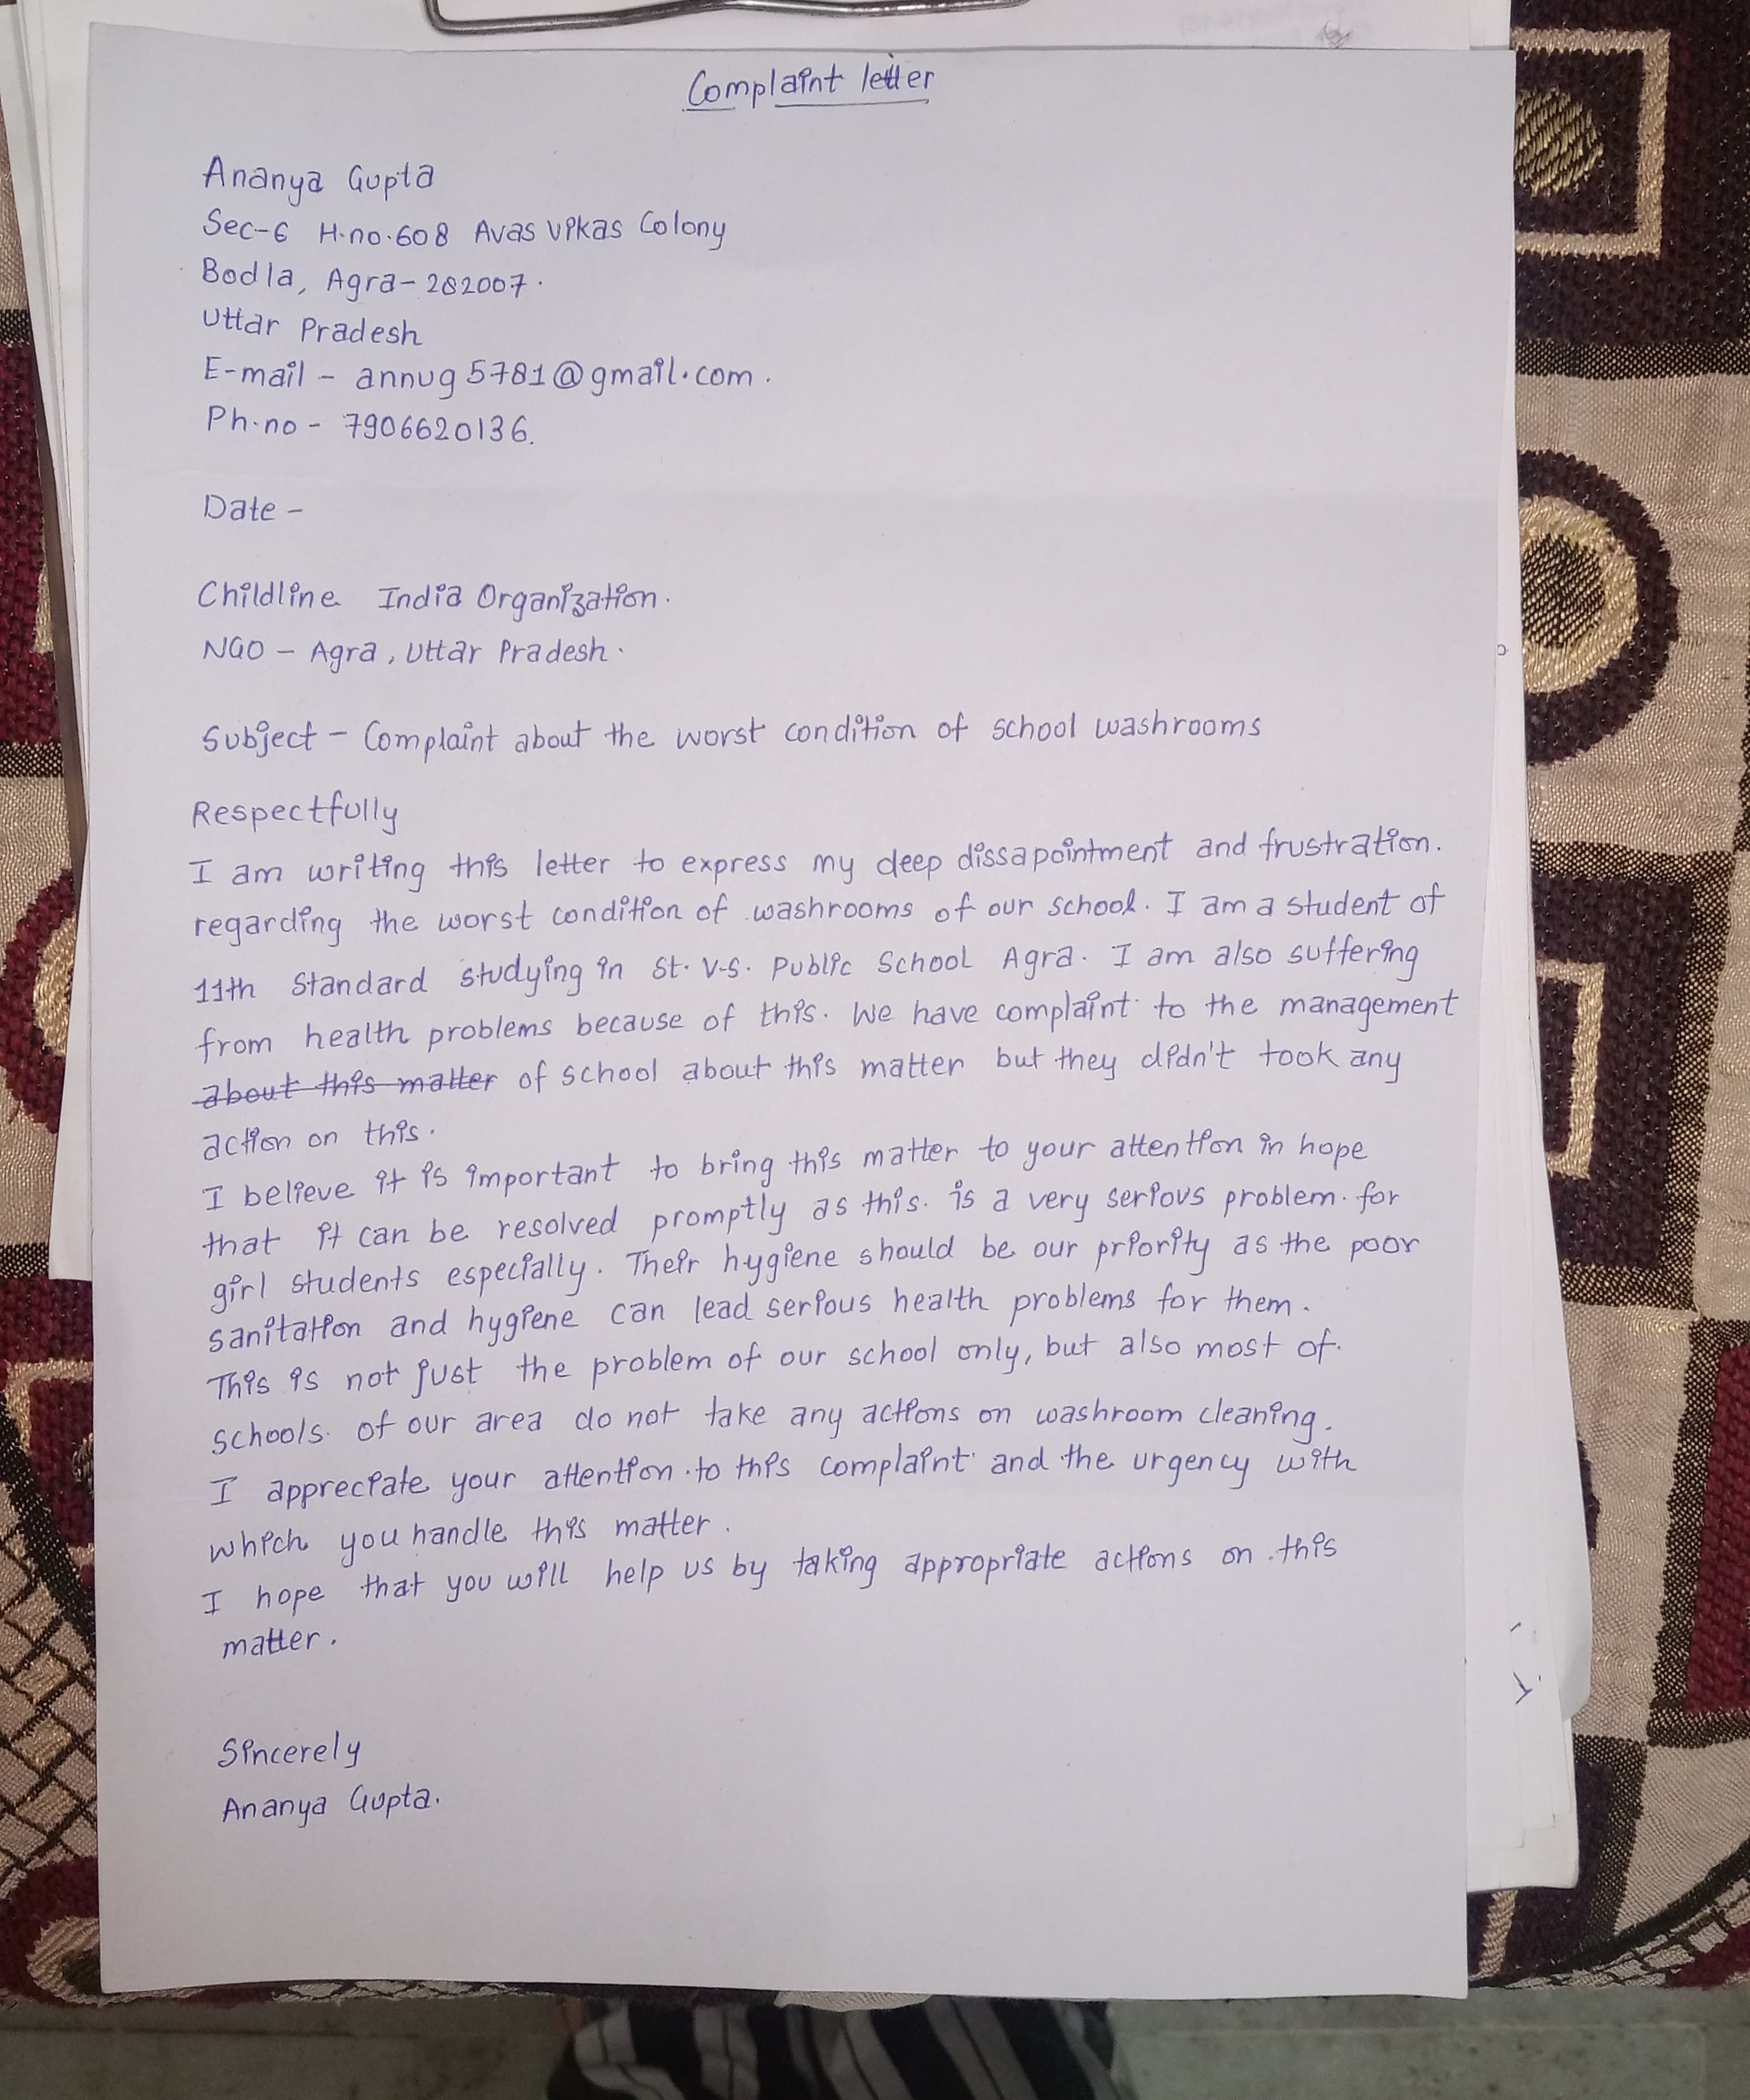 Complaint letter
Ananya Gupta
Sec-6 H.no.608 Avas Vikas Colony
Bodla, Agra-282007.
Uttar Pradesh
E-mail - annug5781@gmail.com.
Ph.no - 7906620136.
Date -
Childline India Organization.
NGO - Agra, Uttar Pradesh.
Subject - Complaint about the worst condition of school washrooms
Respectfully
I am writing this letter to express my deep dissapointment and frustration.
regarding the worst condition of washrooms of our school. I am a student of
11th Standard studying in St. V.S. Public School Agra. I am also suffering
from health problems because of this. We have complaint to the management
about this matter of school about this matter but they didn't took any
action on this.
I believe it is important to bring this matter to your attention in hope
that it can be resolved promptly as this. is a very serious problem. for
girl students especially. Their hygiene should be our priority as the poor
sanitation and hygiene can lead serious health problems for them.
This is not just the problem of our school only, but also most of.
schools. of our area do not take any actions on washroom cleaning.
I appreciate your attention to this complaint and the urgency with
which you handle this matter.
I hope that you will help us by taking appropriate actions on this
matter.
Sincerely
Ananya Gupta.